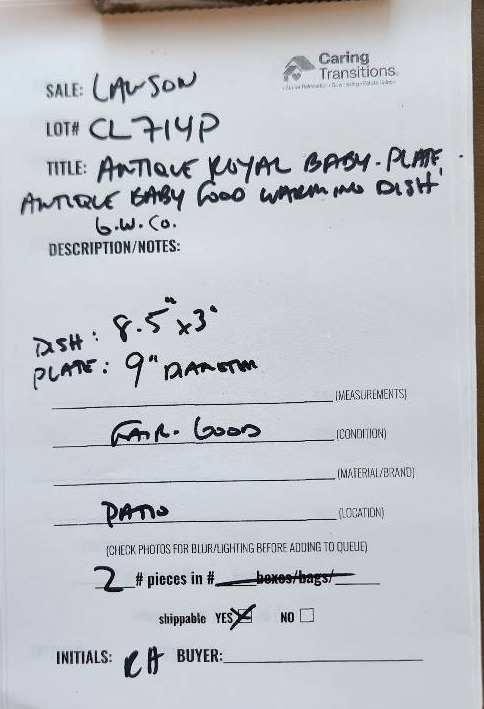 Caring
Transitions
SALE: LAWSON
LOT# CL714P
TITLE: ANTIQUE ROYAL BABY-PLATE
ANTIQUE BABY FOOD WARMING DISH
G.W. Co.
DESCRIPTION/NOTES:
DISH: 8.5" x 3"
PLATE: 9" DIAMETER
(MEASUREMENTS)
FAIR-GOOD (CONDITION)
(MATERIAL/BRAND)
PATIO (LOCATION)
(CHECK PHOTOS FOR BLUR/LIGHTING BEFORE ADDING TO QUEUE)
2 # pieces in # boxes/bags/
shippable YES NO
INITIALS: RH BUYER: